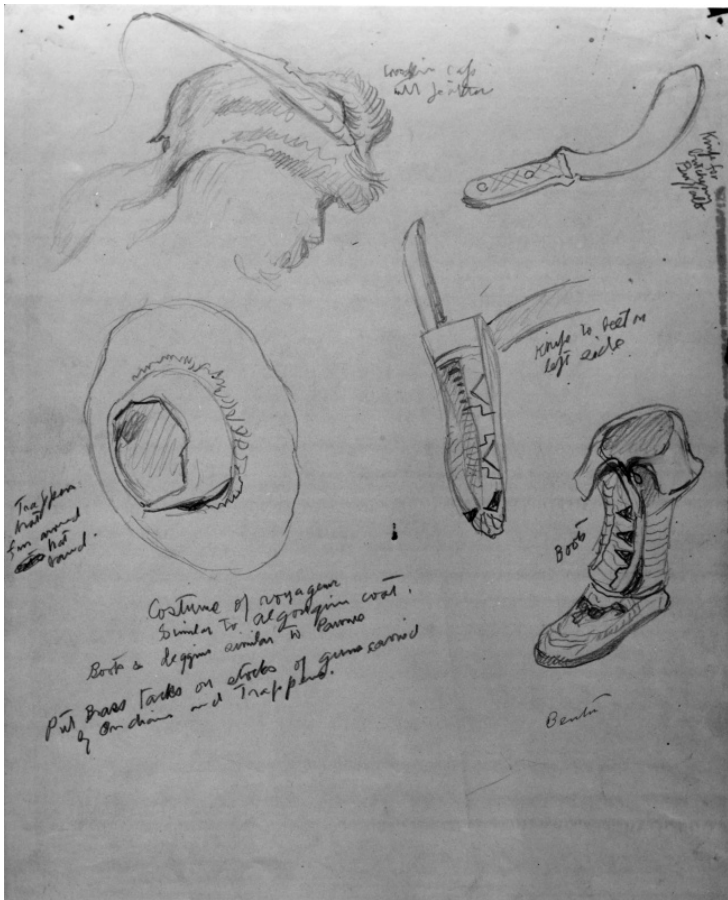 cap
with feather
Knife for
butchering
Buffalo
Knife to belt on
left side
Trappers
hat
fur around
hat
band.
Boots
Costume of voyageur
Similar to algonquin coat.
Boots & leggins similar to Pawnee
Put Brass tacks on stocks of guns carried
by Indians and Trappers.